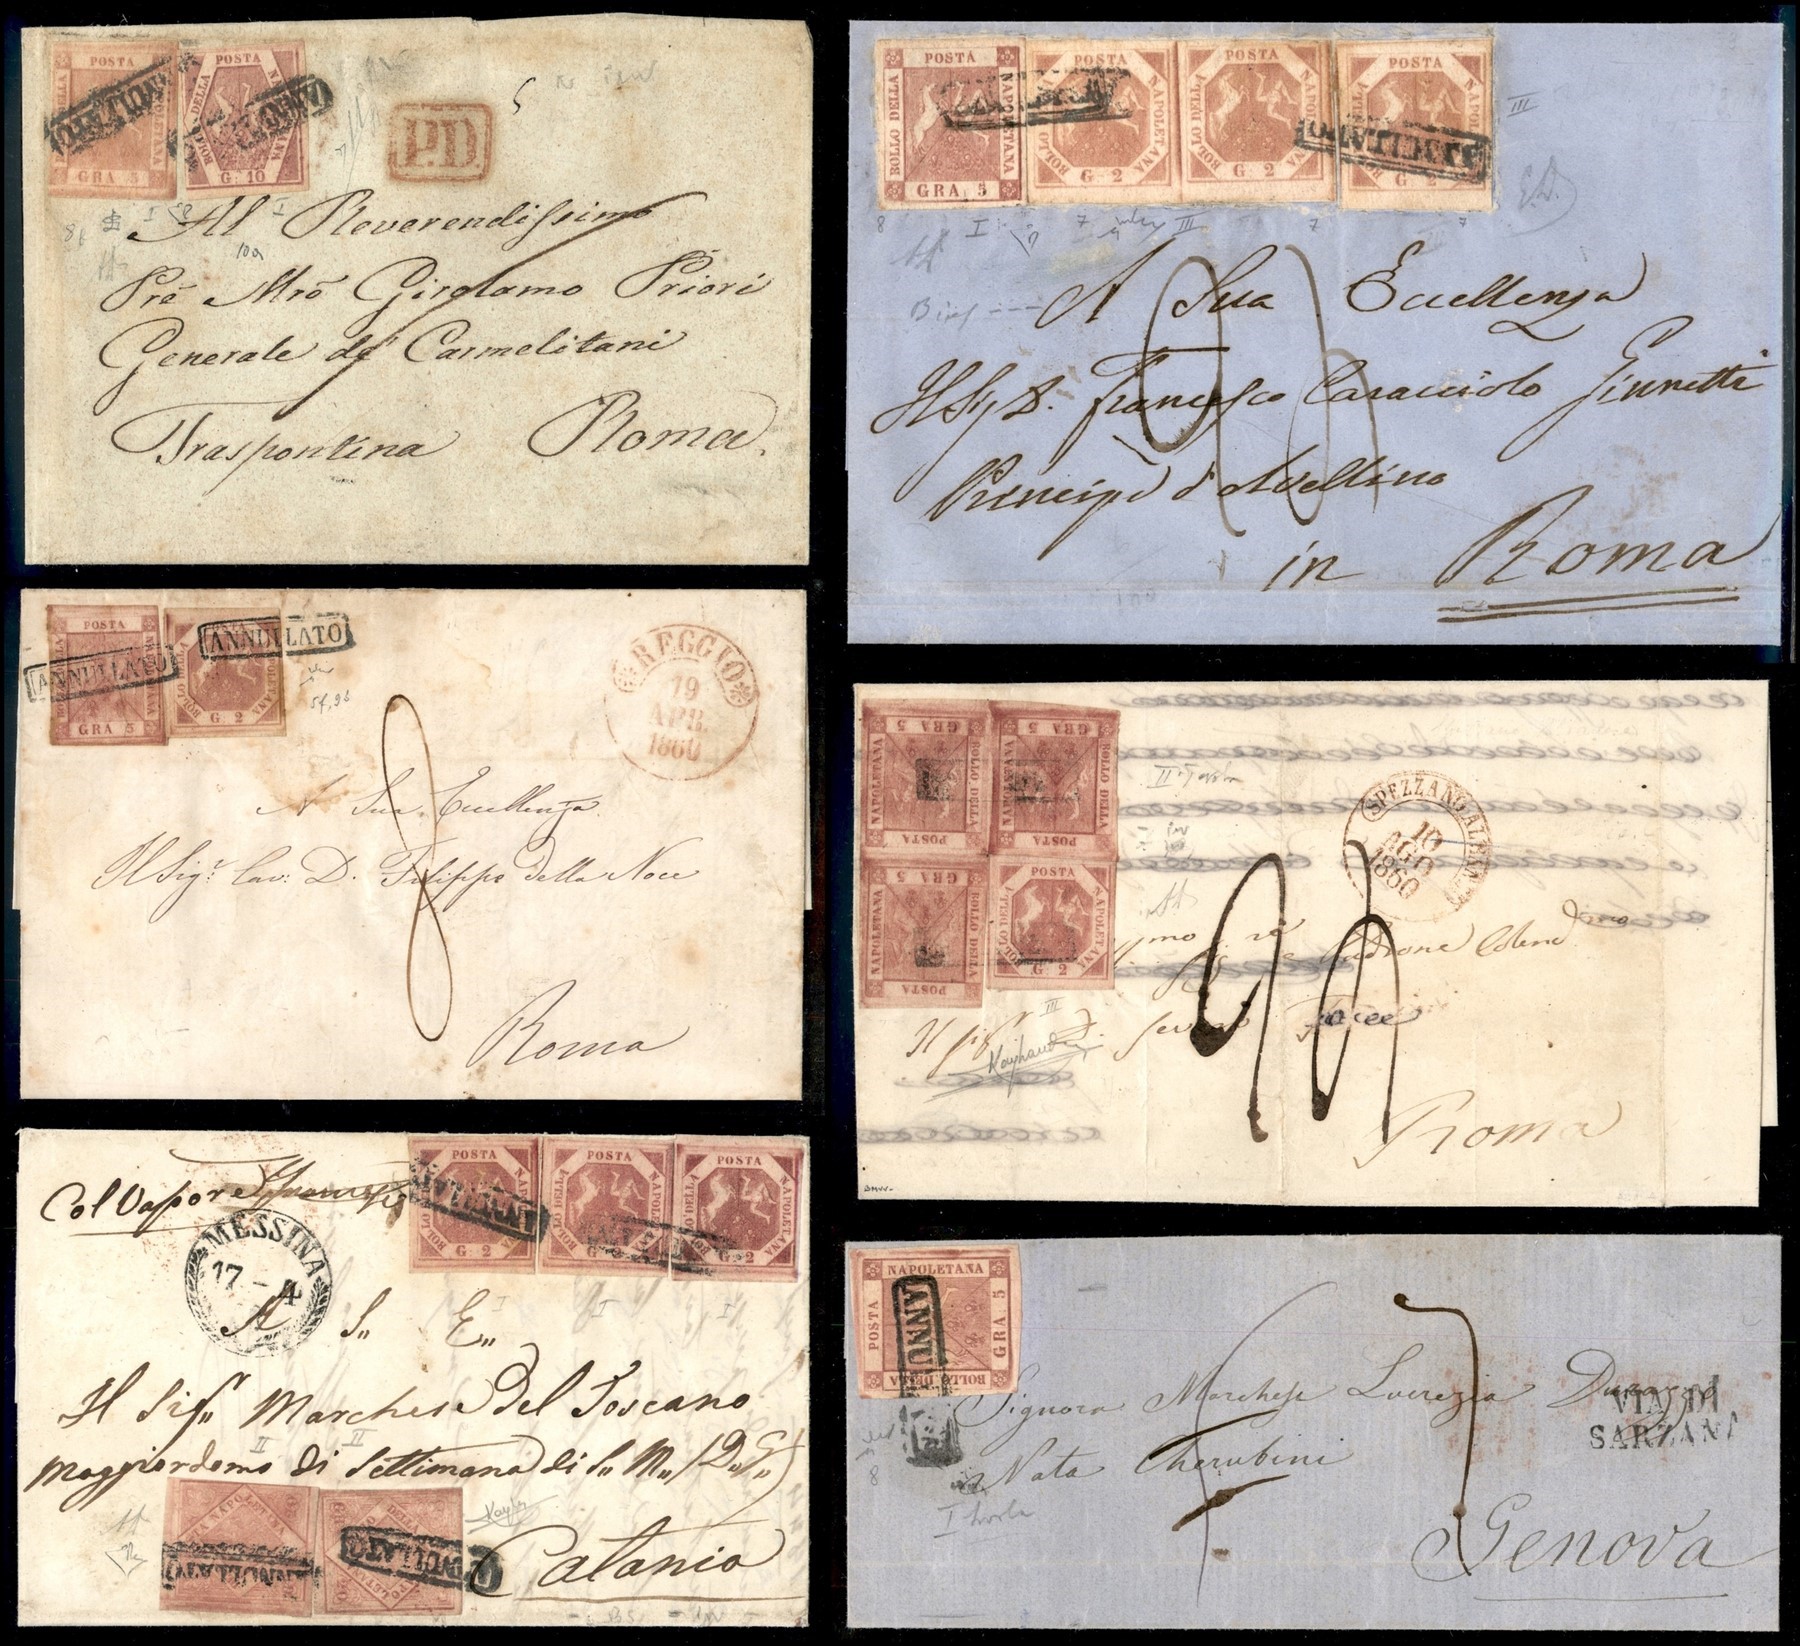 POSTA
BOLLO DELLA
NAPOLETANA
GRA 5
POSTA
BOLLO DELLA
NAPOLETANA
G. 10
ANNULLATO
ANNULLATO
P.D.
Al Reverendissimo
Pre Mro Girolamo Priori
Generale de' Carmelitani
Traspontina Roma.
POSTA
BOLLO DELLA
NAPOLETANA
GRA 5
POSTA
BOLLO DELLA
NAPOLETANA
G. 2
POSTA
BOLLO DELLA
NAPOLETANA
G. 2
POSTA
BOLLO DELLA
NAPOLETANA
G. 2
III
8 I 7 III 7 7
A Sua Eccellenza
Il Sig D. Francesco Caracciolo Ginnetti
Principe d'Avellino
in Roma
POSTA
GRA 5
BOLLO DELLA
NAPOLETANA
G. 2
ANNULLATO
ANNULLATO
REGGIO
19
APR.
1860
8
A Sua Eccellenza
Il Sigr. Cav: D. Filippo Della Noce
Roma
GRA 5
NAPOLETANA
BOLLO DELLA
POSTA
GRA 5
NAPOLETANA
BOLLO DELLA
POSTA
GRA 5
NAPOLETANA
BOLLO DELLA
POSTA
POSTA
BOLLO DELLA
NAPOLETANA
G. 2
SPEZZANO ALBANESE
10
AGO
1860
Padrone
Il Sigr
III
Roma
Col Vapore
POSTA
BOLLO DELLA
NAPOLETANA
G. 2
POSTA
BOLLO DELLA
NAPOLETANA
G. 2
POSTA
BOLLO DELLA
NAPOLETANA
G. 2
MESSINA
17 - 4
A S. E.
I I I
Il Sigr. Marchese Del Toscano
II II
Maggiordomo di Settimana di S. M. (D. G.)
ANNULLATO
ANNULLATO
Catania
NAPOLETANA
POSTA
GRA 5
BOLLO DELLA
ANNU
Signora Marchese Lucrezia Durazzo
VIA DI
SARZANA
Nata Cherubini
8
I
Genova